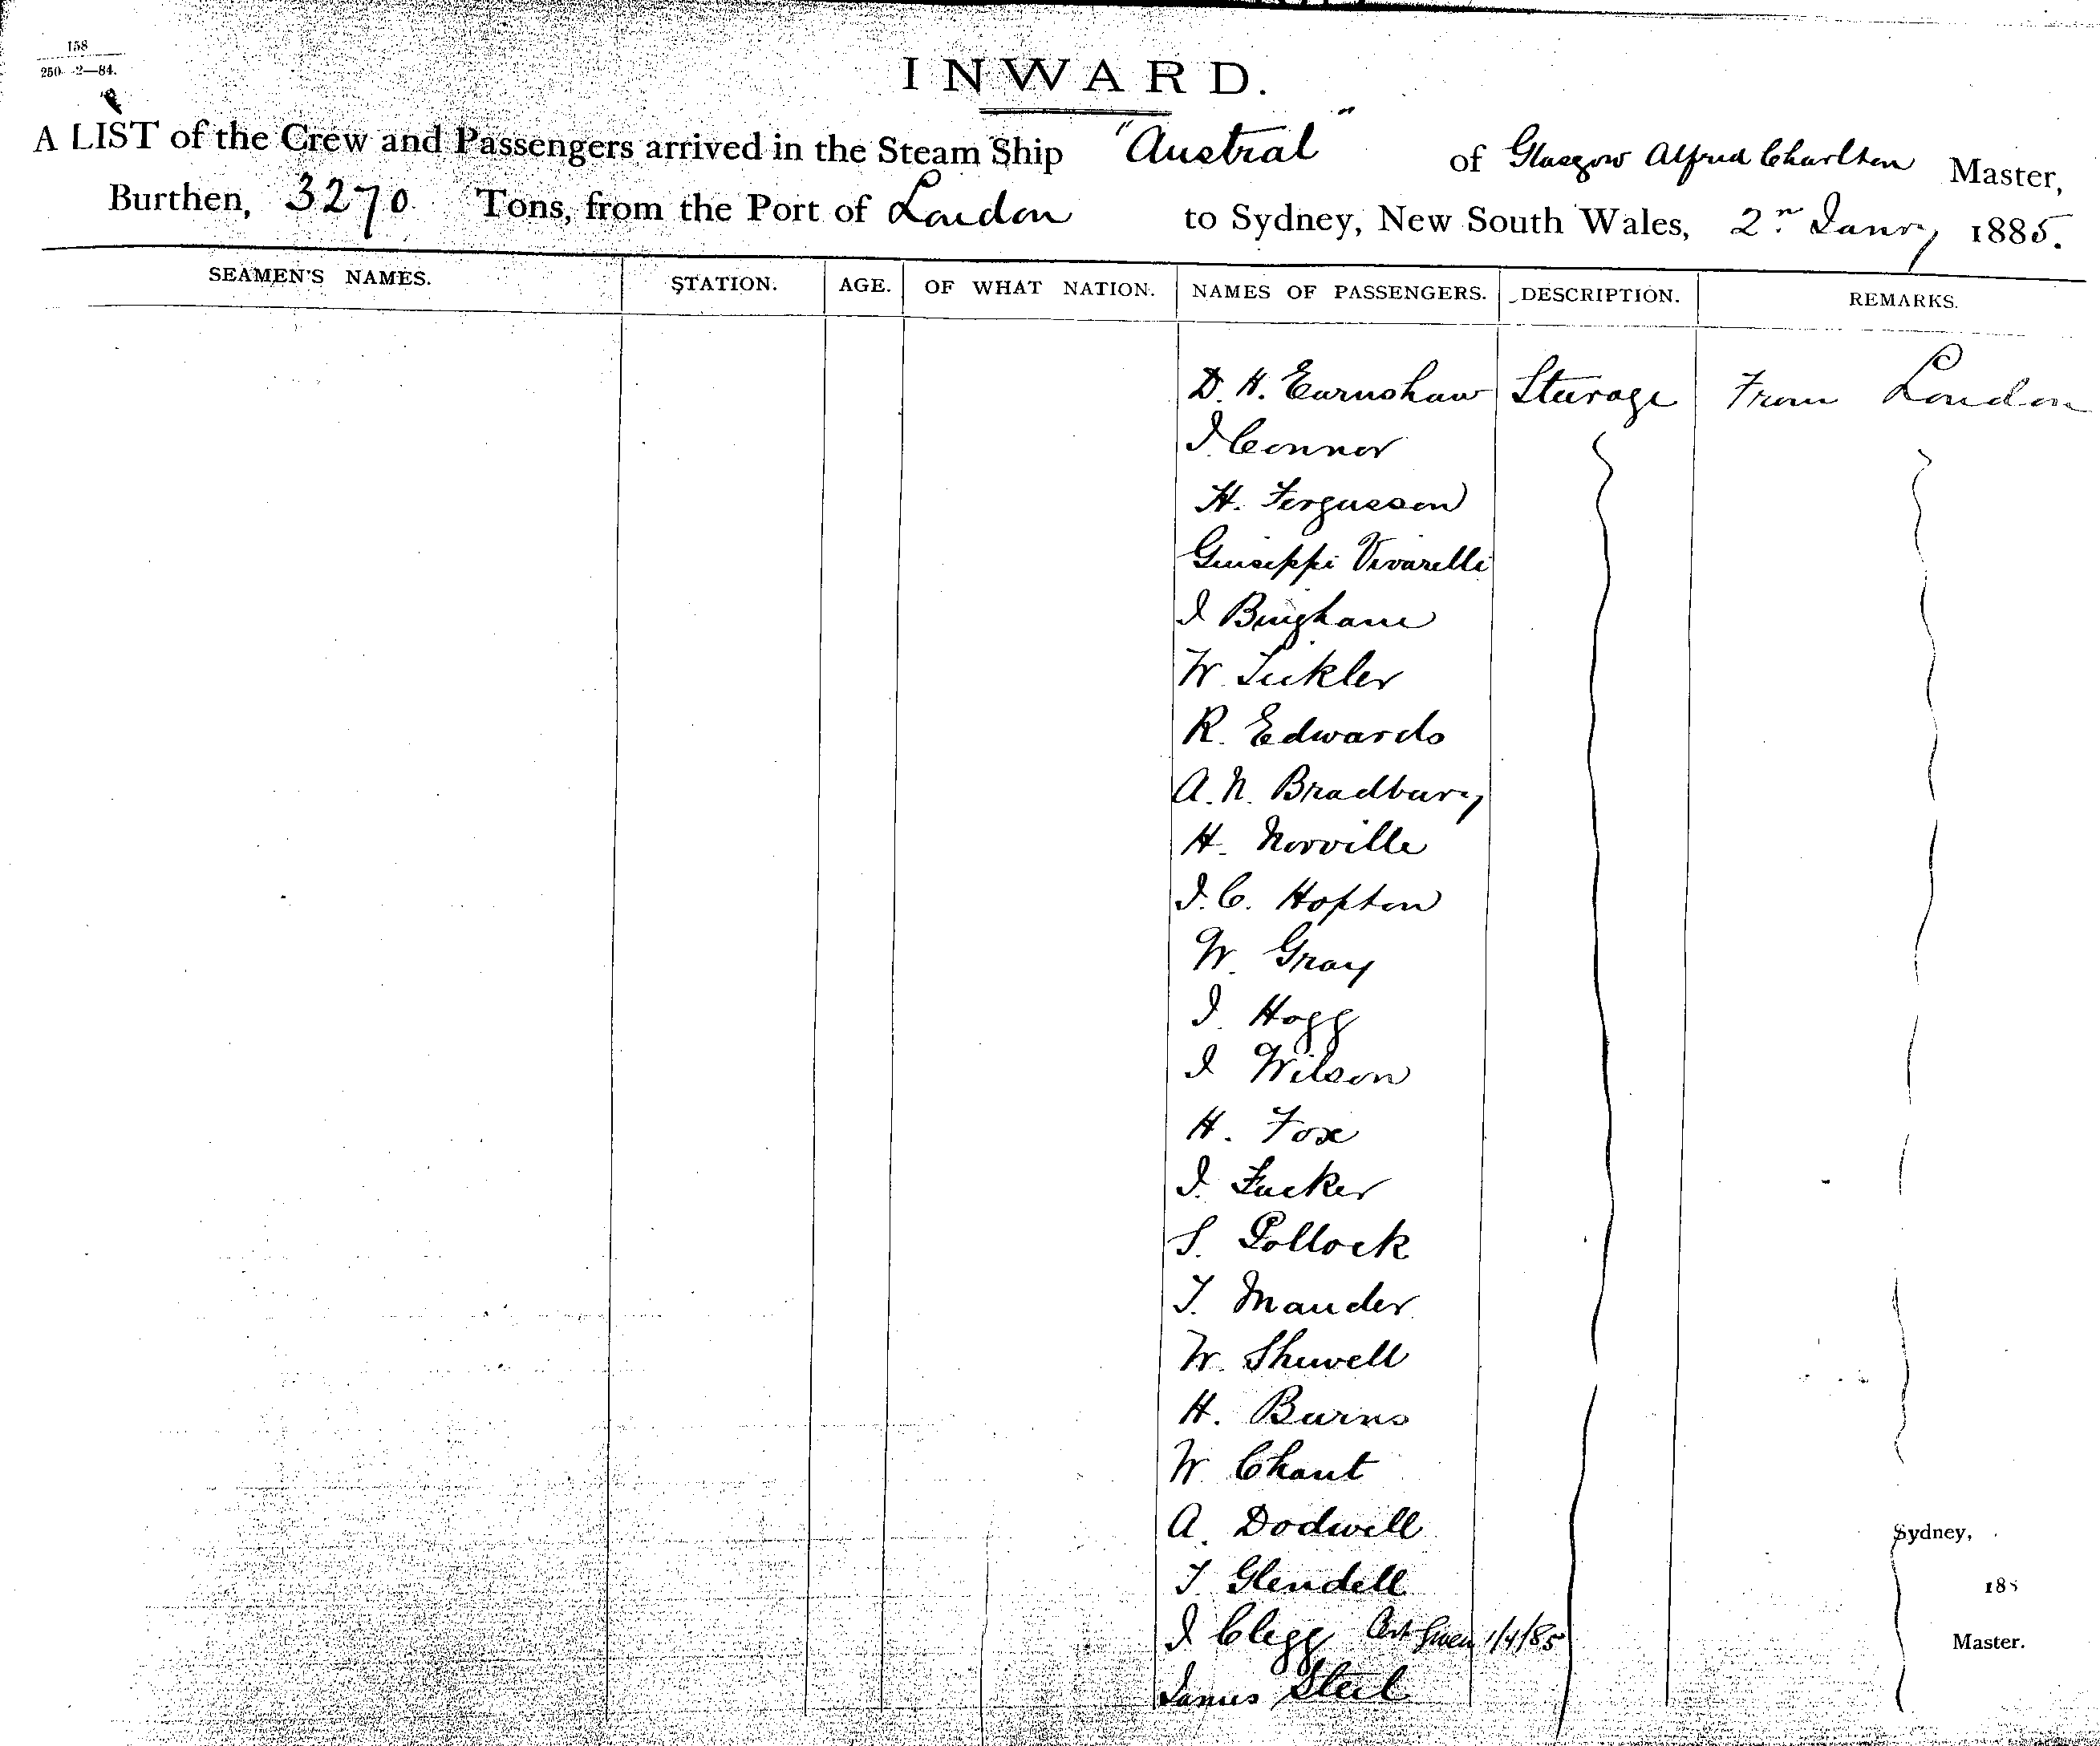 158
250—2—84.
INWARD.
A LIST of the Crew and Passengers arrived in the Steam Ship "Austral" of Glasgow Alfred Charlton Master,
Burthen, 3270 Tons, from the Port of London to Sydney, New South Wales, 2nd Janry 1885.
SEAMEN'S NAMES. STATION. AGE. OF WHAT NATION. NAMES OF PASSENGERS. DESCRIPTION. REMARKS.
D. H. Earnshaw Steerage From London
J. Connor
H. Fergusson
Guiseppi Vivarelli
J Bingham
W. Tickler
R. Edwards
A. N. Bradbury
H. Norville
J. C. Hopton
W. Gray
J. Hogg
J Wilson
H. Fox
J. Tucker
S. Pollock
T. Mander
W. Shewell
H. Burns
W Chant
A. Dodwell
Sydney,
T. Glendell
188
J Clegg Cert Given 1/4/85
Master.
James Steel